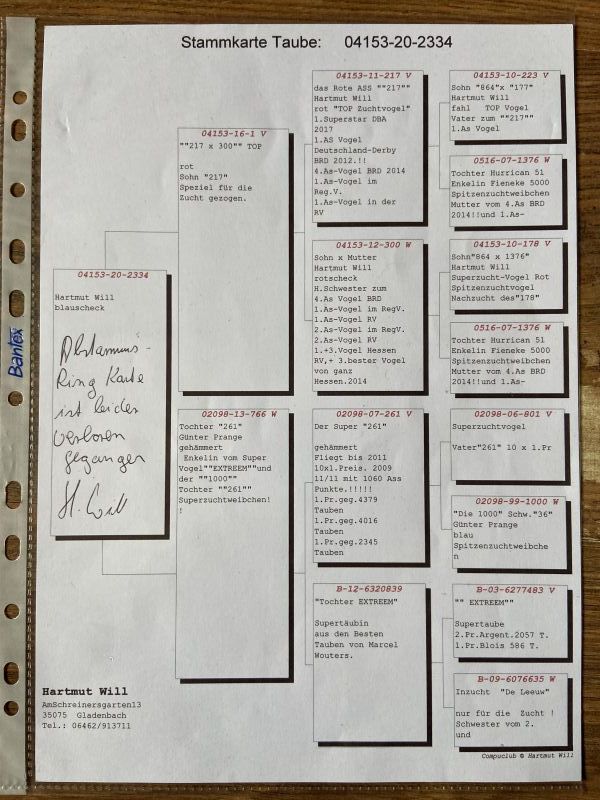 Stammkarte Taube: 04153-20-2334
04153-20-2334
Hartmut Will
blauscheck
Abstammungs-
Ring Karte
ist leider
verloren
gegangen
H. Will
04153-16-1 V
""217 x 300"" TOP
rot
Sohn "217"
Speziel für die
Zucht gezogen.
02098-13-766 W
Tochter "261"
Günter Prange
gehämmert
Enkelin vom Super
Vogel""EXTREEM""und
der ""1000""
Tochter ""261""
Superzuchtweibchen!
!
04153-11-217 V
das Rote ASS ""217""
Hartmut Will
rot "TOP Zuchtvogel"
1.Superstar DBA
2017
1.AS Vogel
Deutschland-Derby
BRD 2012.!!
4.As-Vogel BRD 2014
1.As-Vogel im
Reg.V.
1.As-Vogel in der
RV
04153-12-300 W
Sohn x Mutter
Hartmut Will
rotscheck
H.Schwester zum
4.As Vogel BRD
1.As-Vogel im RegV.
1.As-Vogel RV
2.As-Vogel im RegV.
2.As-Vogel RV
1.+3.Vogel Hessen
RV,+ 3.bester Vogel
von ganz
Hessen.2014
02098-07-261 V
Der Super "261"
gehämmert
Fliegt bis 2011
10xl.Preis. 2009
11/11 mit 1060 Ass
Punkte.!!!!!
1.Pr.geg.4379
Tauben
1.Pr.geg.4016
Tauben
1.Pr.geg.2345
Tauben
B-12-6320839
"Tochter EXTREEM"
Supertäubin
aus den Besten
Tauben von Marcel
Wouters.
04153-10-223 V
Sohn "864"x "177"
Hartmut Will
fahl TOP Vogel
Vater zum ""217""
1.As Vogel
0516-07-1376 W
Tochter Hurrican 51
Enkelin Fieneke 5000
Spitzenzuchtweibchen
Mutter vom 4.As BRD
2014!!und 1.As-
04153-10-178 V
Sohn"864 x 1376"
Hartmut Will
Superzucht-Vogel Rot
Spitzenzuchtvogel
Nachzucht des"178"
0516-07-1376 W
Tochter Hurrican 51
Enkelin Fieneke 5000
Spitzenzuchtweibchen
Mutter vom 4.As BRD
2014!!und 1.As-
02098-06-801 V
Superzuchtvogel
Vater"261" 10 x 1.Pr
02098-99-1000 W
"Die 1000" Schw."36"
Günter Prange
blau
Spitzenzuchtweibche
n
B-03-6277483 V
"" EXTREEM""
Supertaube
2.Pr.Argent.2057 T.
1.Pr.Blois 586 T.
B-09-6076635 W
Inzucht "De Leeuw"
nur für die Zucht !
Schwester vom 2.
und
Hartmut Will
AmSchreinersgarten13
35075 Gladenbach
Tel.: 06462/913711
Compuclub © Hartmut Will
Bantex